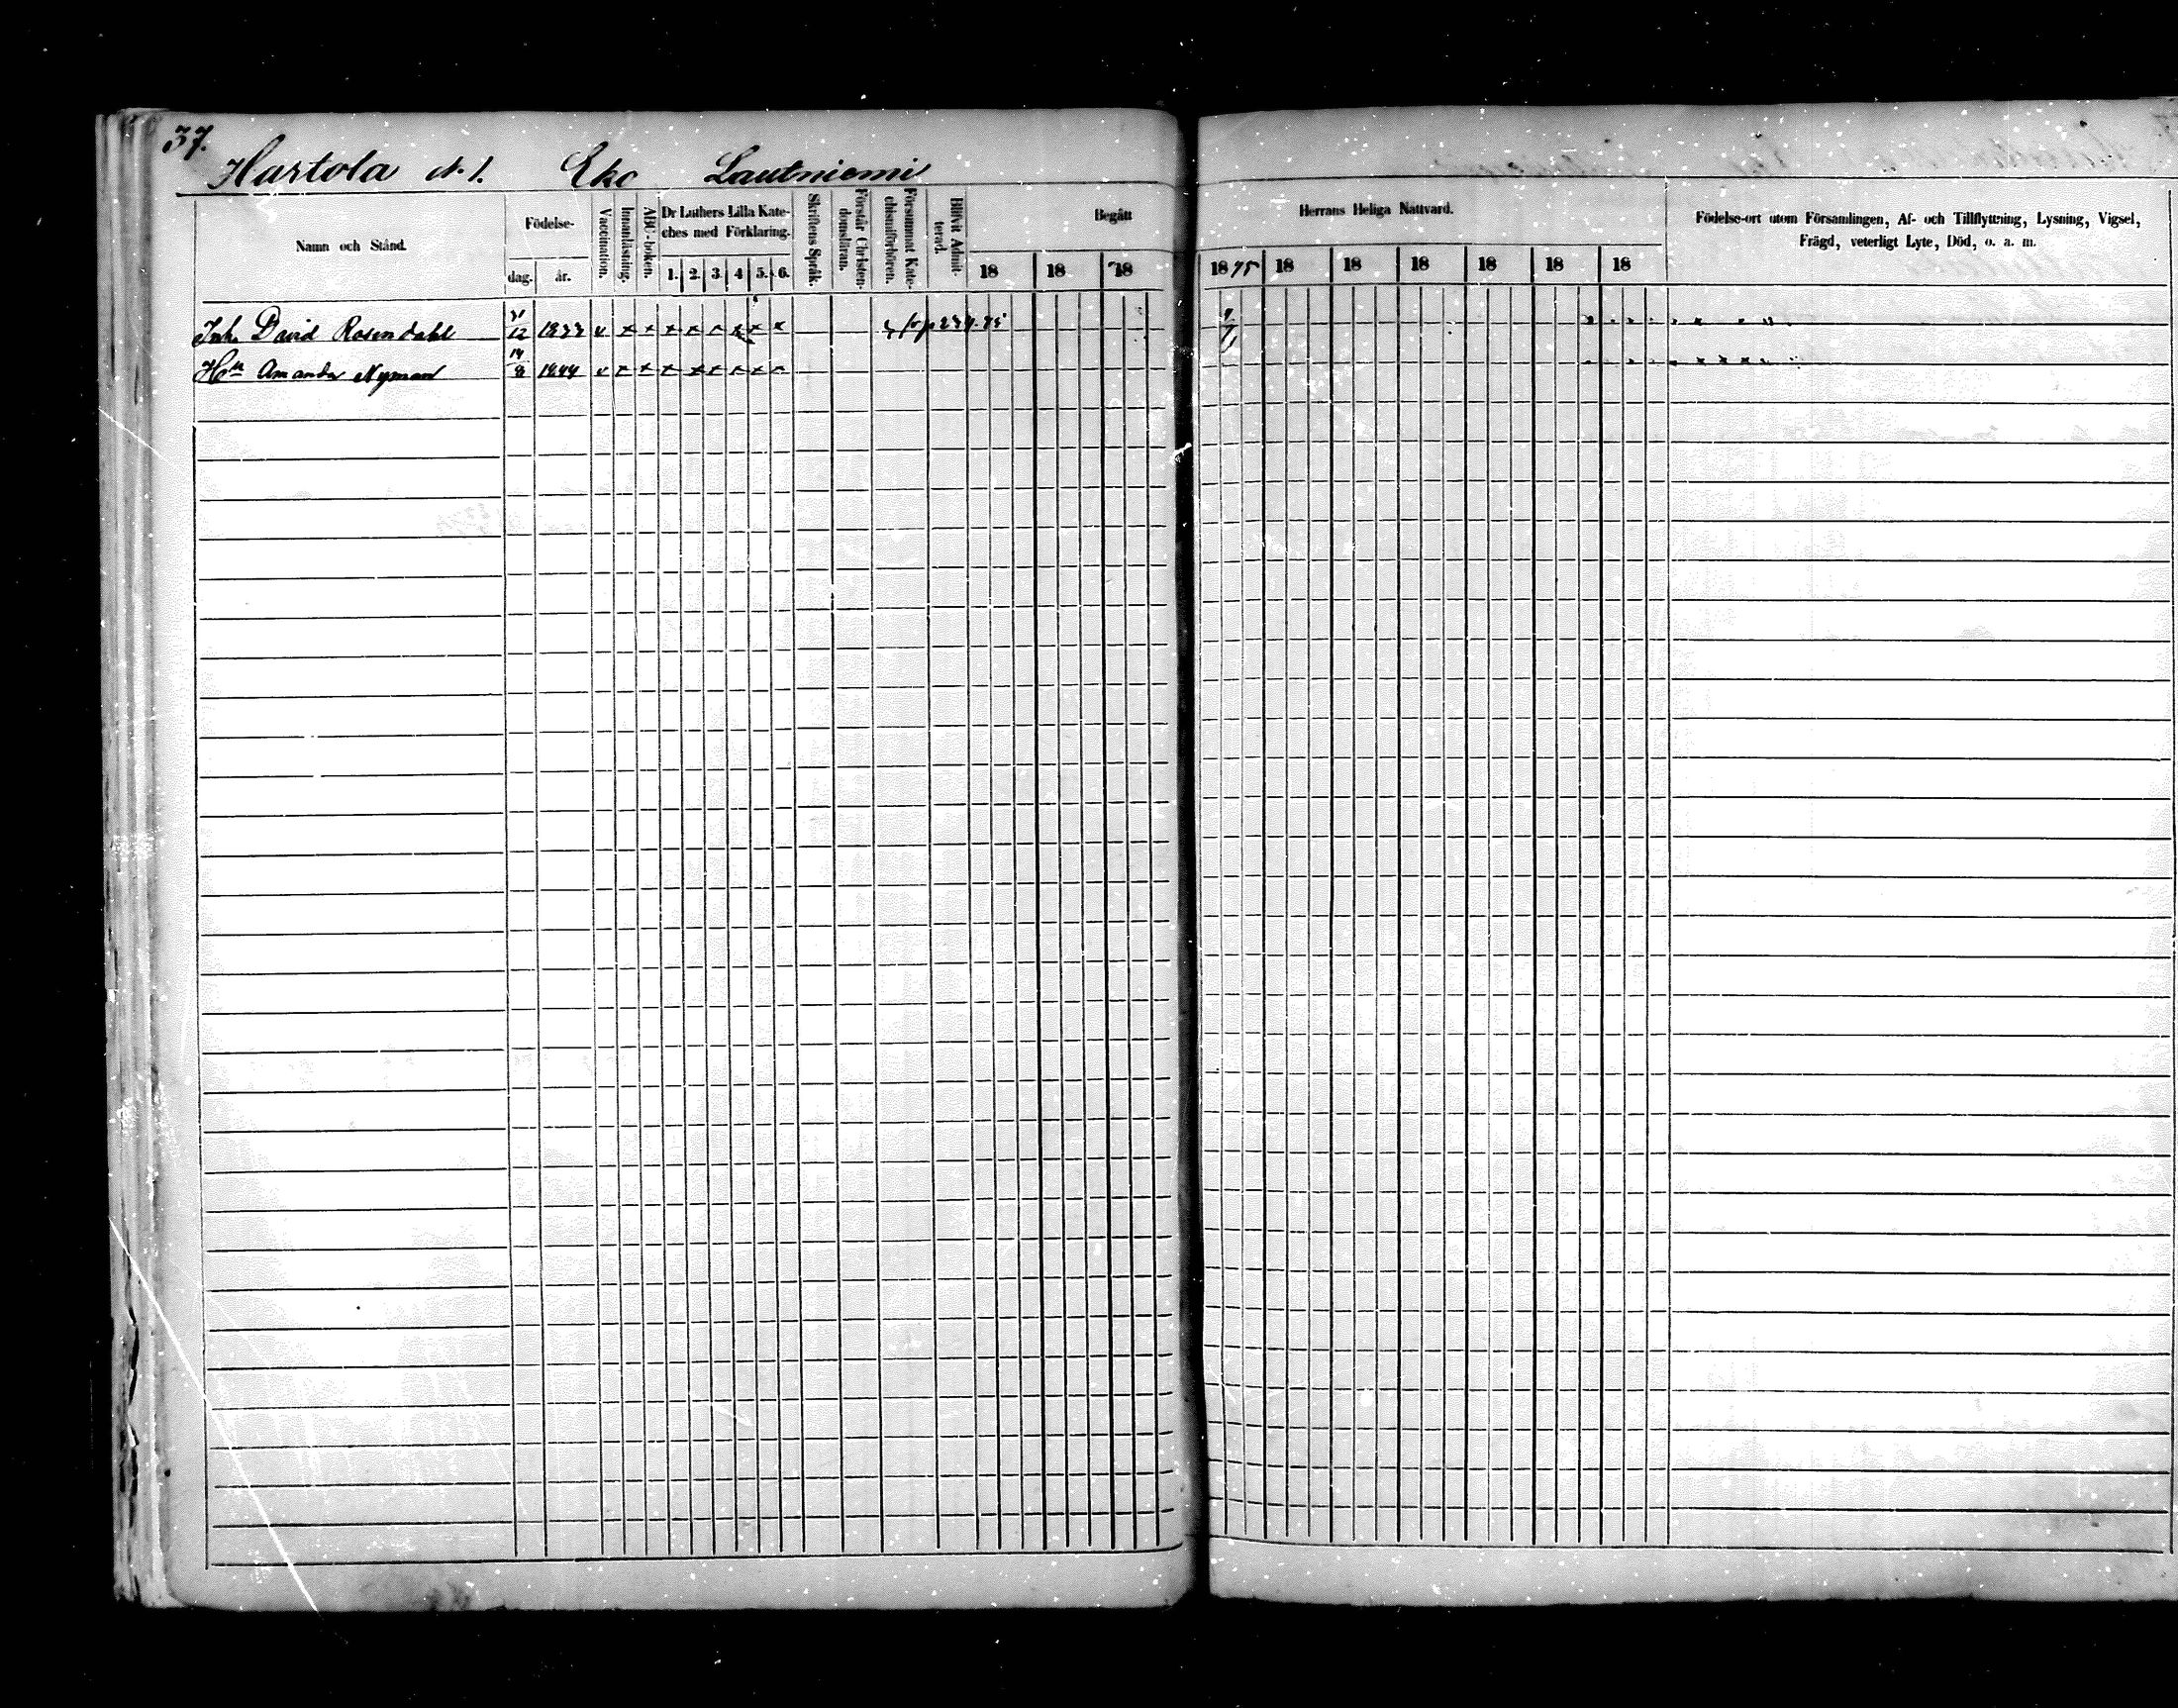 37.
Hartola N. 1. Eko Lautniemi
Namn och Stånd.
Födelse-
dag. år.
Vaccination.
Innanläsning.
ABC-boken.
Dr Luthers Lilla Kate-
ches med Förklaring.
1. 2. 3. 4 5. 6.
Skriftens Språk.
Förstår Christen-
domsläran.
Försummat Kate-
chismiförhören.
Blifvit Admit-
terad.
Begått
18 18 18
Herrans Heliga Nattvard.
18 75 18 18 18 18 18 18
Födelse-ort utom Församlingen, Af- och Tillflyttning, Lysning, Vigsel,
Frägd, veterligt Lyte, Död, o. a. m.
Inh. David Rosendahl 31/12 1833 v x x x x x x x x
Amanda Nyman 14/8 1844 v x x x x x x x x